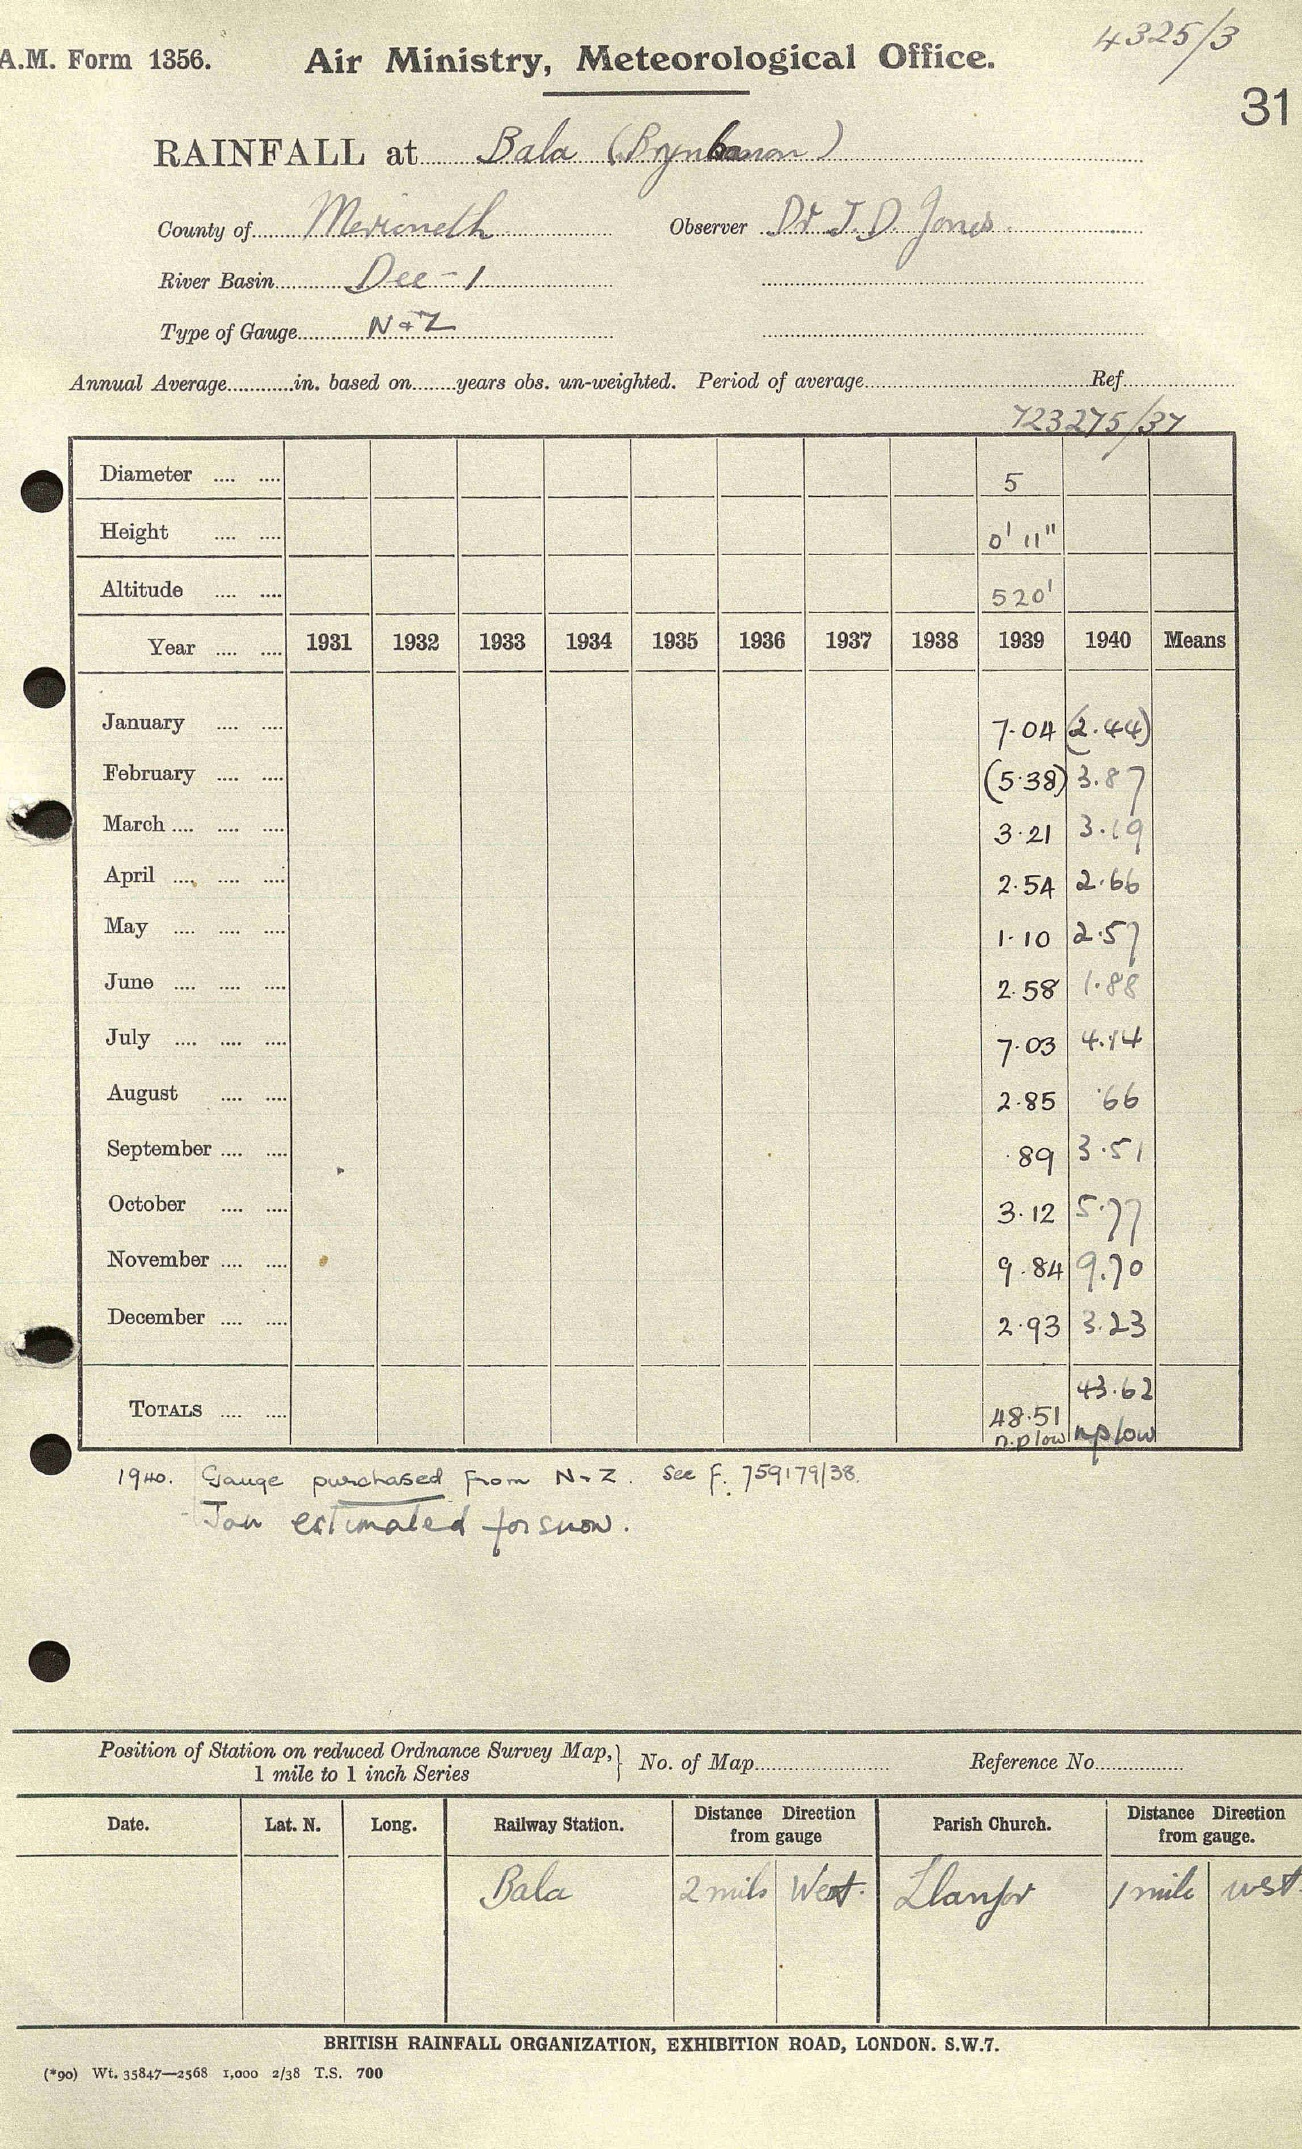 4325/3
A.M. Form 1356. Air Ministry, Meteorological Office.
31
RAINFALL at Bala (Brynbanon)
County of Merioneth Observer Dr J. D. Jones.
River Basin Dee - 1
Type of Gauge N & Z
Annual Average in. based on years obs. un-weighted. Period of average Ref
723275/37
Diameter 5
Height 0' 11"
Altitude 520'
Year 1931 1932 1933 1934 1935 1936 1937 1938 1939 1940 Means
January 7.04 (2.44)
February (5.38) 3.87
March 3.21 3.19
April 2.54 2.66
May 1.10 2.57
June 2.58 1.88
July 7.03 4.14
August 2.85 .66
September .89 3.51
October 3.12 5.77
November 9.84 9.70
December 2.93 3.23
TOTALS 48.51 43.62
n.p low n p low
1940. Gauge purchased from N-Z. See f. 759179/38.
Jan estimated for snow.
Position of Station on reduced Ordnance Survey Map, 1 mile to 1 inch Series } No. of Map Reference No
Date. Lat. N. Long. Railway Station. Distance Direction from gauge Parish Church. Distance Direction from gauge.
Bala 2 mils West. Llanfor 1 mile west.
BRITISH RAINFALL ORGANIZATION, EXHIBITION ROAD, LONDON. S.W.7.
(*90) Wt. 35847—2568 1,000 2/38 T.S. 700